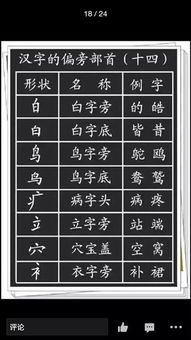 18 / 24
汉字的偏旁部首（十四）
形状 名 称 例 字
白 白字旁 的 皓
白 白字底 皆 昔
鸟 鸟字旁 鸵 鸥
鸟 鸟字底 鸯 鹫
疒 病字头 病 疼
立 立字旁 站 端
穴 穴宝盖 空 窝
衤 衣字旁 补 裙
评论